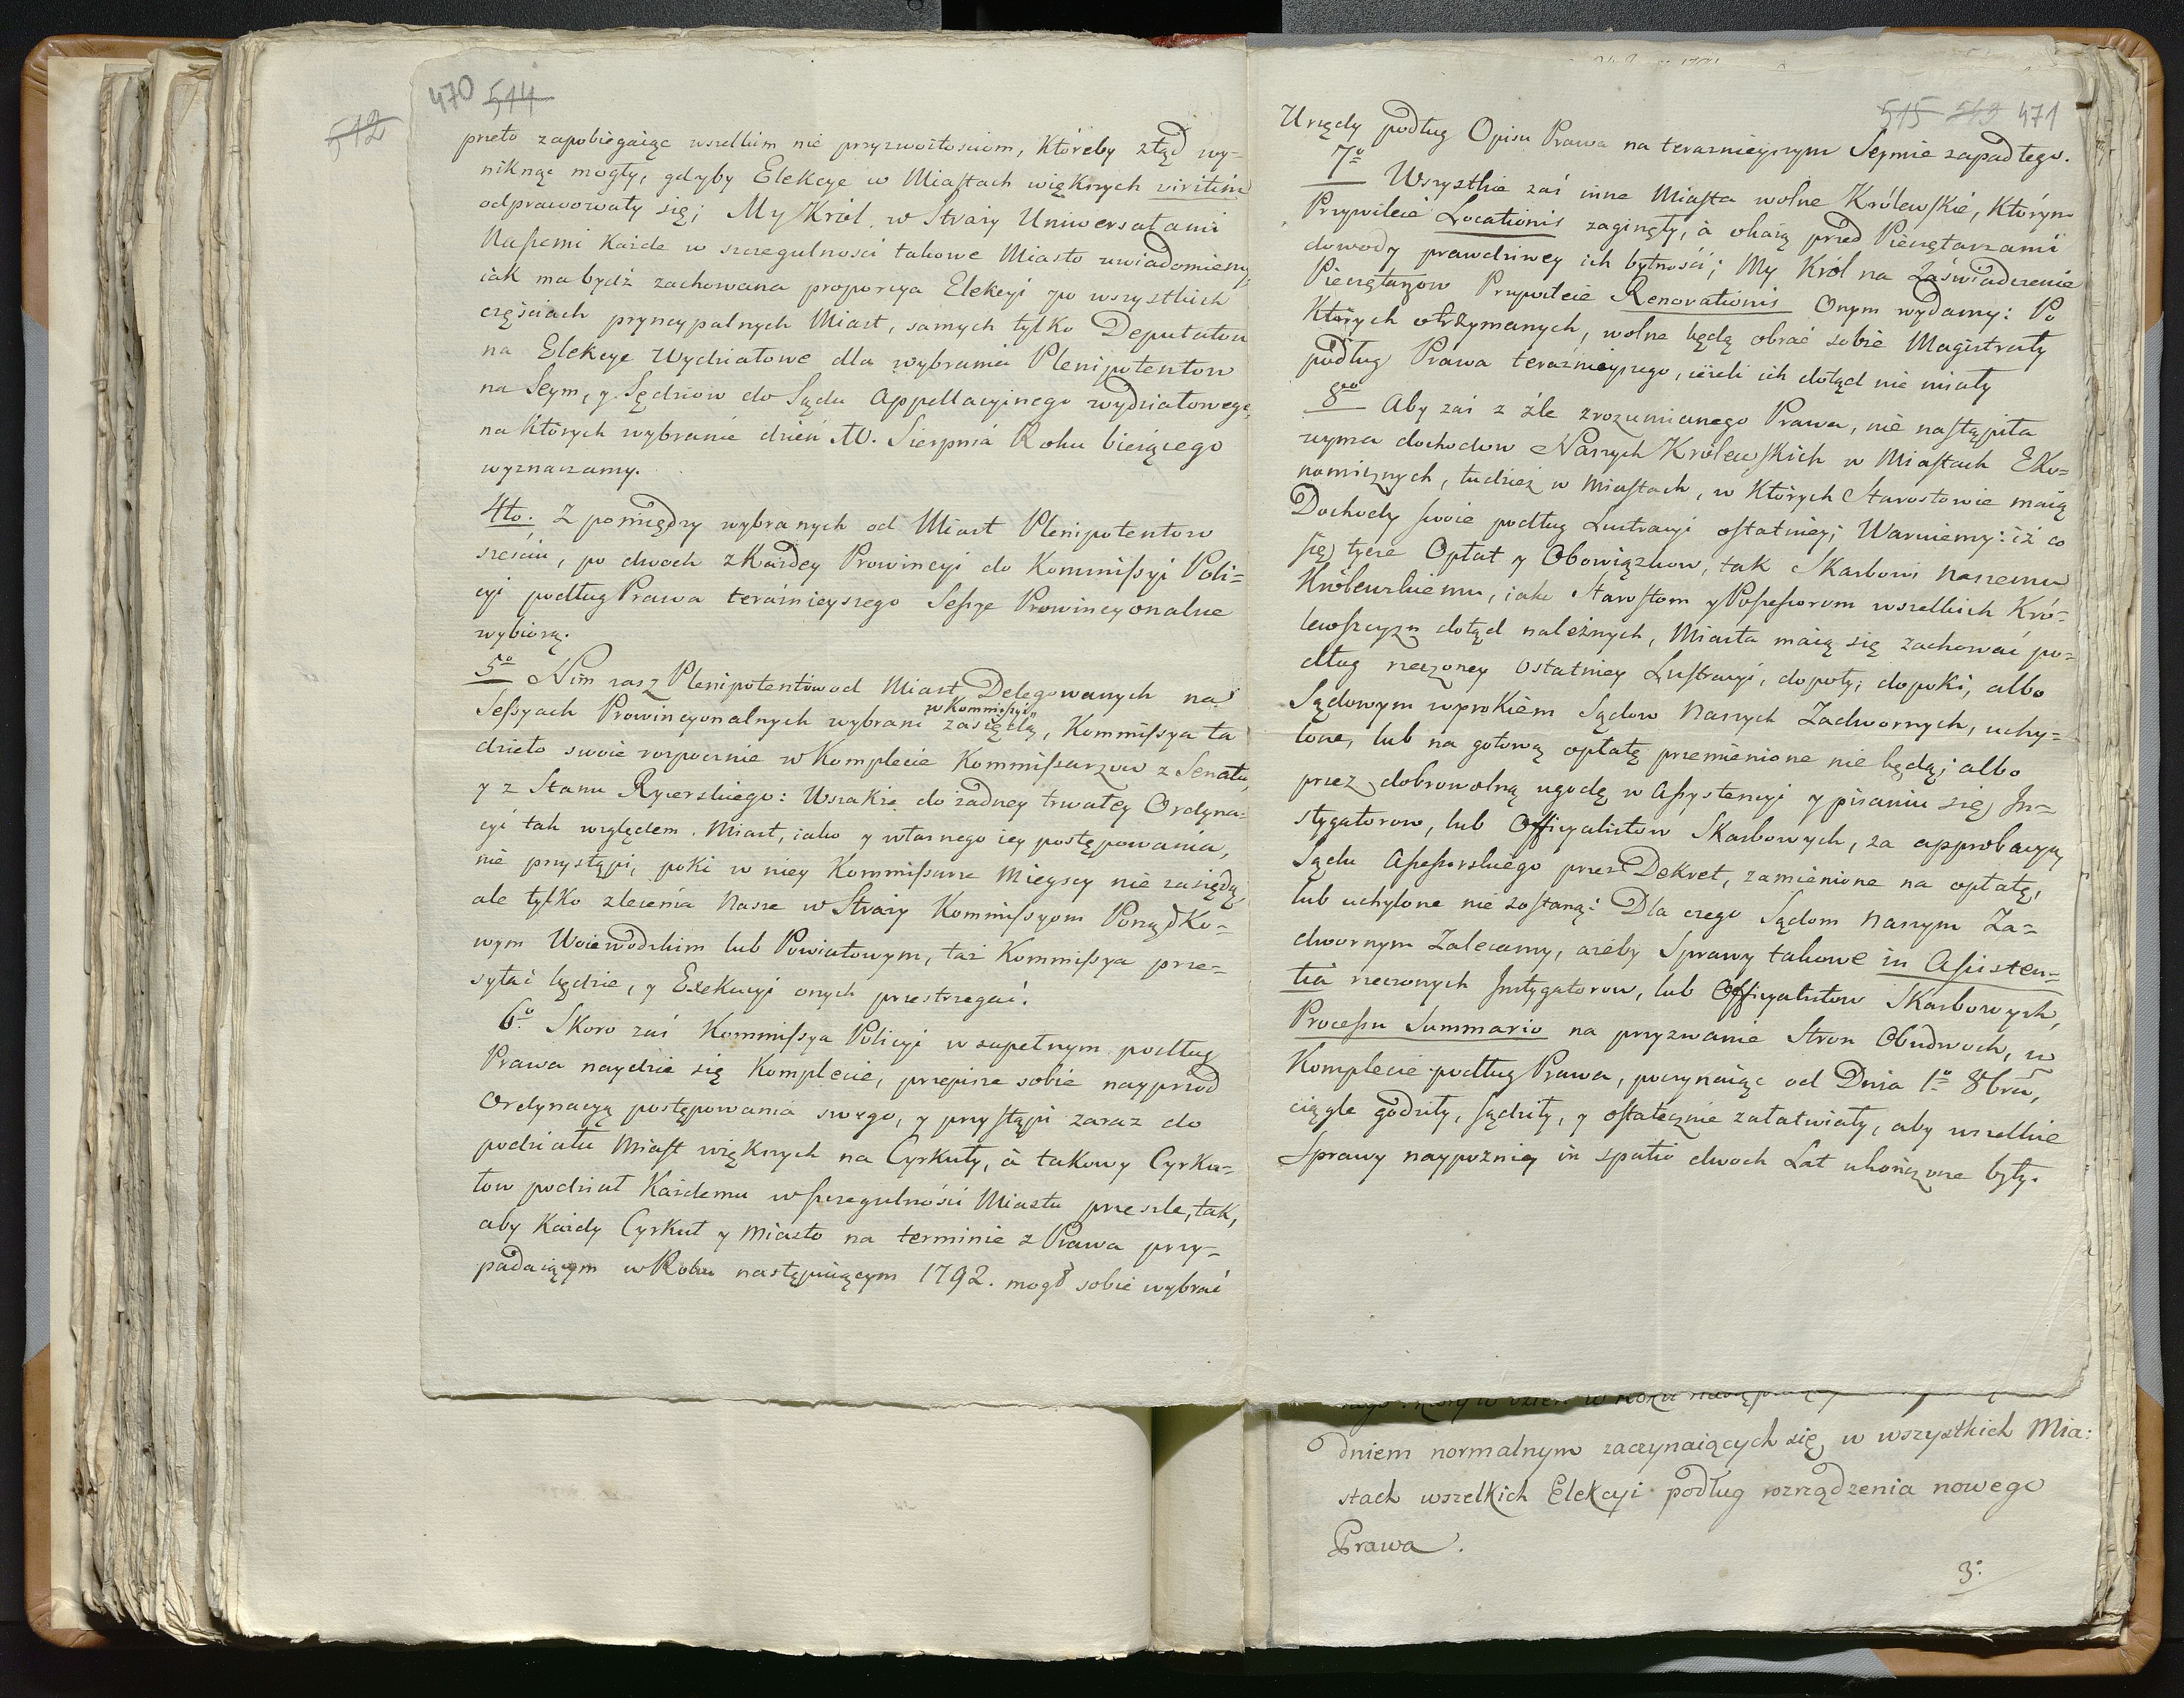 512
470 514
przeto zapobiegaiąc wszelkim nie przyzwoitosciom, któreby ztąd wy=
niknąc mogły, gdyby Elekcye w Miastach większych viritim
odprawowały się; My Król w Straży Uniwersałami
Naszemi każde w szczegulnosci takowe Miasto uwiadomiemy,
iak ma bydź zachowana proporcya Elekcyi po wszystkich
częściach pryncypalnych Miast, samych tylko Deputatow
na Elekcye Wydziałowe dla wybrania Plenipotentow
na Seym, y Sędziow do Sądu Appellacyinego wydziałowego,
na których wybranie dzień 10. Sierpnia Roku bieżącego
wyznaczamy.
4to. Z pomiędzy wybranych od Miast Plenipotentow
sześciu, po dwoch z Każdey Prowincyi do Kommissyi Poli=
cyi podług Prawa teraźnieyszego Sessye Prowincyonalne
wybiorą.
5o Nim zasz Plenipotentiwod Miast Delegowanych na
Sessyach Prowincyonalnych wybrani w Kommissyi zasiędą, Kommissya ta
dzieło swoie rozpocznie w Komplecie Kommissarzow z Senatu,
y z Stanu Rycerskiego: Wszakże do żadney trwałey Ordyna=
cyi tak względem Miast, iako y własnego iey postępowania,
nie przystąpi, poki w niey Kommissarze Mieyscy nie zasiędą,
ale tylko zlecenia Nasze w Straży Kommissyom Porządko=
wym Woiewodzkim lub Powiatowym, taż Kommissya prze=
syłać będzie, y Exekucyi onych przestrzegać.
6o. Skoro zaś Kommissya Policyi w zupełnym podług
Prawa naydzie się Komplecie, przepisze sobie nayprzod
Ordynacyą postępowania swego, y przystąpi zaraz do
podziału Miast większych na Cyrkuły, á takowy Cyrku=
łow podział Każdemu w szczegulności Miastu prześle, tak,
aby Każdy Cyrkuł y Miasto na terminie z Prawa przy=
padaiącym w Roku następuiącym 1792. mogł sobie wybrać
515 513 471
Urzędy podług Opisu Prawa na teraznieyszym Seymie zapadłego.
7o Wszystkie zaś inne Miasta wolne Królewskie, którym
Przywileie Locationis zaginęły, à okażą przed Pieczętarzami
dowody prawdziwey ich bytności; My Król na Zaświadczenie
Pieczętarzow Przywileie Renovationis Onym wydamy: Po
Których otrzymanych, wolne będą obrać sobie Magistraty
podług Prawa teraźnieyszego, ieżeli ich dotąd nie miały
8vo Aby zaś z źle zrozumianego Prawa, nie nastąpiła
uyma dochodow Naszych Królewskich w Miastach Eko=
nomicznych, tudzież w Miastach, w Których Starostowie maią
Dochody swoie podług Lustracyi ostatniey; Waruiemy: iż co
się tycze Opłat y Obowiązkow, tak Skarbowi naszemu
Królewskiemu, iako Starostom y Possessorom wszelkich Kró=
lewszczyzn dotąd należnych, Miasta maią się zachować po=
dług rzeczoney ostatniey Lustracyi, dopoty, dopoki, albo
Sądowym wyrokiem Sądow Naszych Zadwornych, uchy=
lone, lub na gotową opłatę przemienione nie będą; albo
przez dobrowolną ugodę w Assystencyi y pisaniu się In=
stygatorow, lub Officyalistow Skarbowych, za approbacyą
Sądu Assessorskiego przez Dekret, zamienione na opłatę,
lub uchylone nie zostaną: Dla czego Sądom Naszym Za=
dwornym Zalecamy, ażeby Sprawy takowe in Assisten=
tia rzeczonych Instygatorow, lub Officyalistow Skarbowych,
Processu Summario na przyzwanie Stron Obudwoch, w
Komplecie podług Prawa, poczynaiąc od Dnia 1o 8bra,
ciągle godziły, sądziły, y ostatecznie załatwiały, aby wszelkie
Sprawy naypozniey in spatio dwoch Lat ukończone były.
dniem normalnym zaczynaiących się, w wszystkich Mia:
stach wszelkich Elekcyi podług rozrządzenia nowego
Prawa.
3o